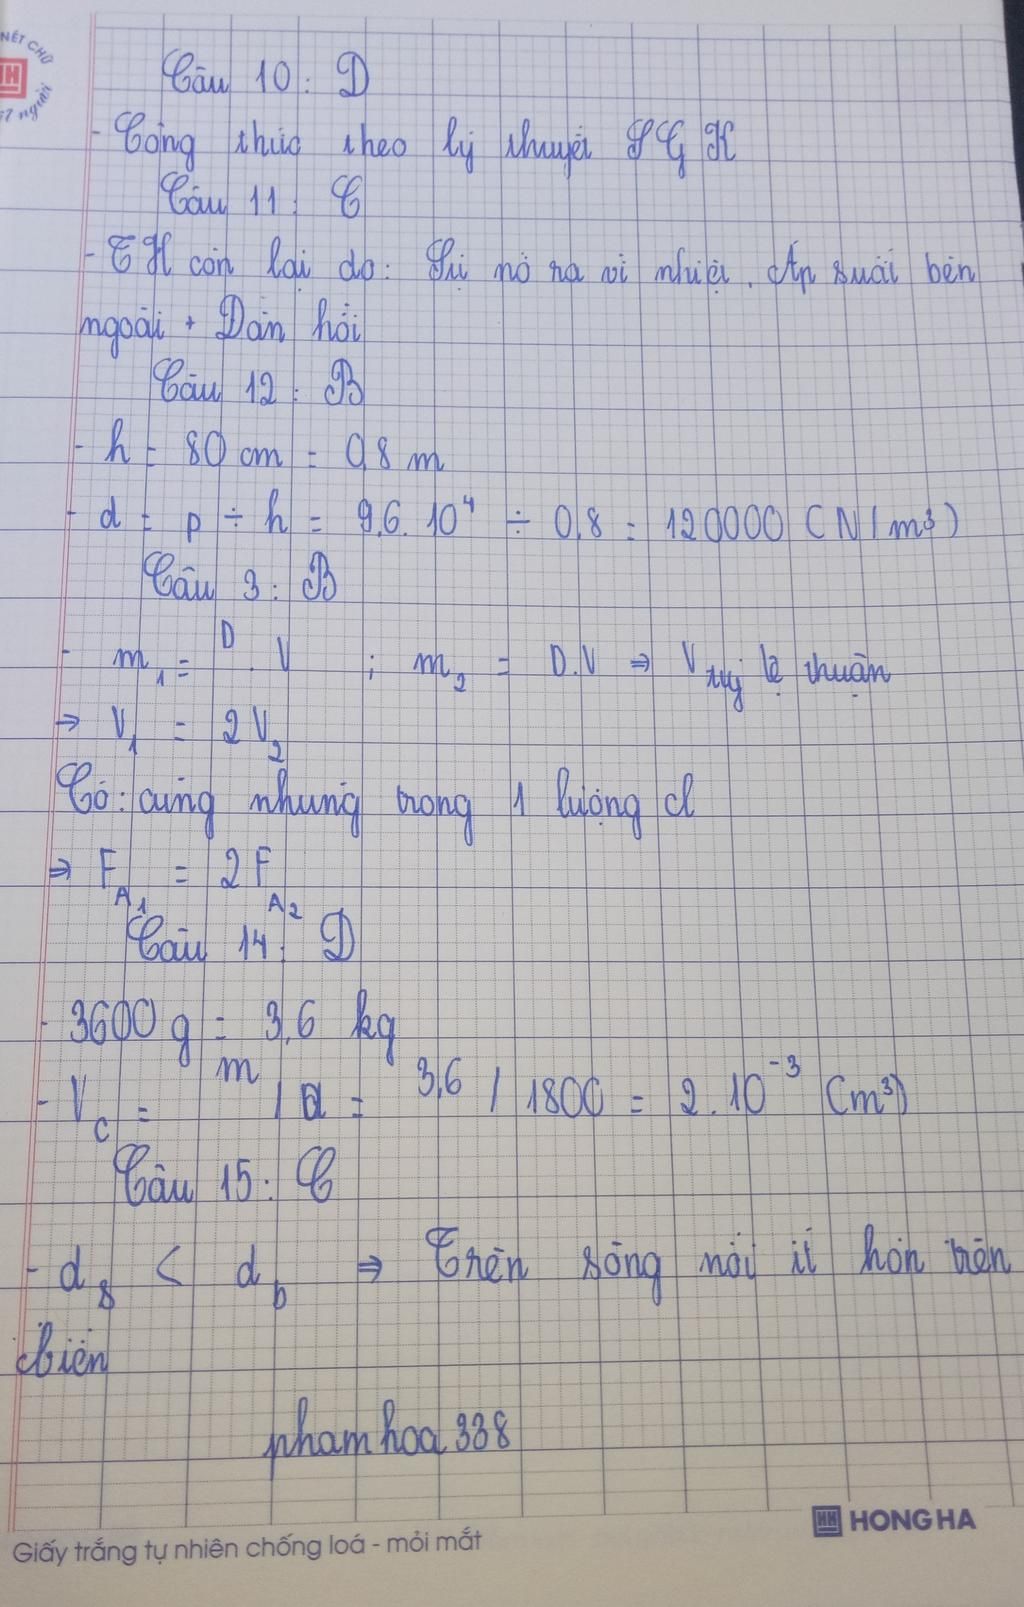 NÉT CHỮ
nết người
Câu 10: D
- Công thức theo lý thuyết SGK
Câu 11: C
- TH còn lại do: Sự nở ra vì nhiệt, Áp suất bên
ngoài + Đàn hồi
Câu 12: B
- h = 80 cm = 0,8 m
- d = p ÷ h = 9,6.10⁴ ÷ 0,8 = 120000 (N/m³)
Câu 3: B
- m₁ = D.V ; m₂ = D.V ⇒ V tỷ lệ thuận
⇒ V₁ = 2V₂
Có: cùng nhúng trong 1 lượng cl
⇒ F_A₁ = 2F_A₂
Câu 14: D
- 3600 g = 3,6 kg
- V_c = m / d = 3,6 / 1800 = 2.10⁻³ (m³)
Câu 15: C
- d_s < d_b ⇒ Trên sông nổi ít hơn trên
biển
phamhoa338
HONG HA
Giấy trắng tự nhiên chống loá - mỏi mắt